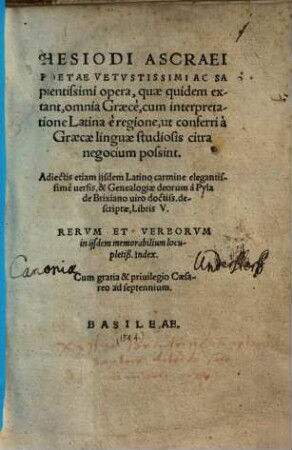 HESIODI ASCRAEI
POETAE VETVSTISSIMI AC SA
pientissimi opera, quæ quidem ex-
tant, omnia Græcè, cum interpreta-
tione Latina è regione, ut conferri à
Græcæ linguæ studiosis citra
negocium possint.
Adiectis etiam iisdem Latino carmine elegantis-
simè uersis, & Genealogiæ deorum à Pyla
de Brixiano uiro doctiss. de-
scriptæ, Libris V.
RERVM ET VERBORVM
in iisdem memorabilium locu-
pletiß. Index.
Canoniæ
Cum gratia & priuilegio Cæsa-
reo ad septennium.
BASILEAE.